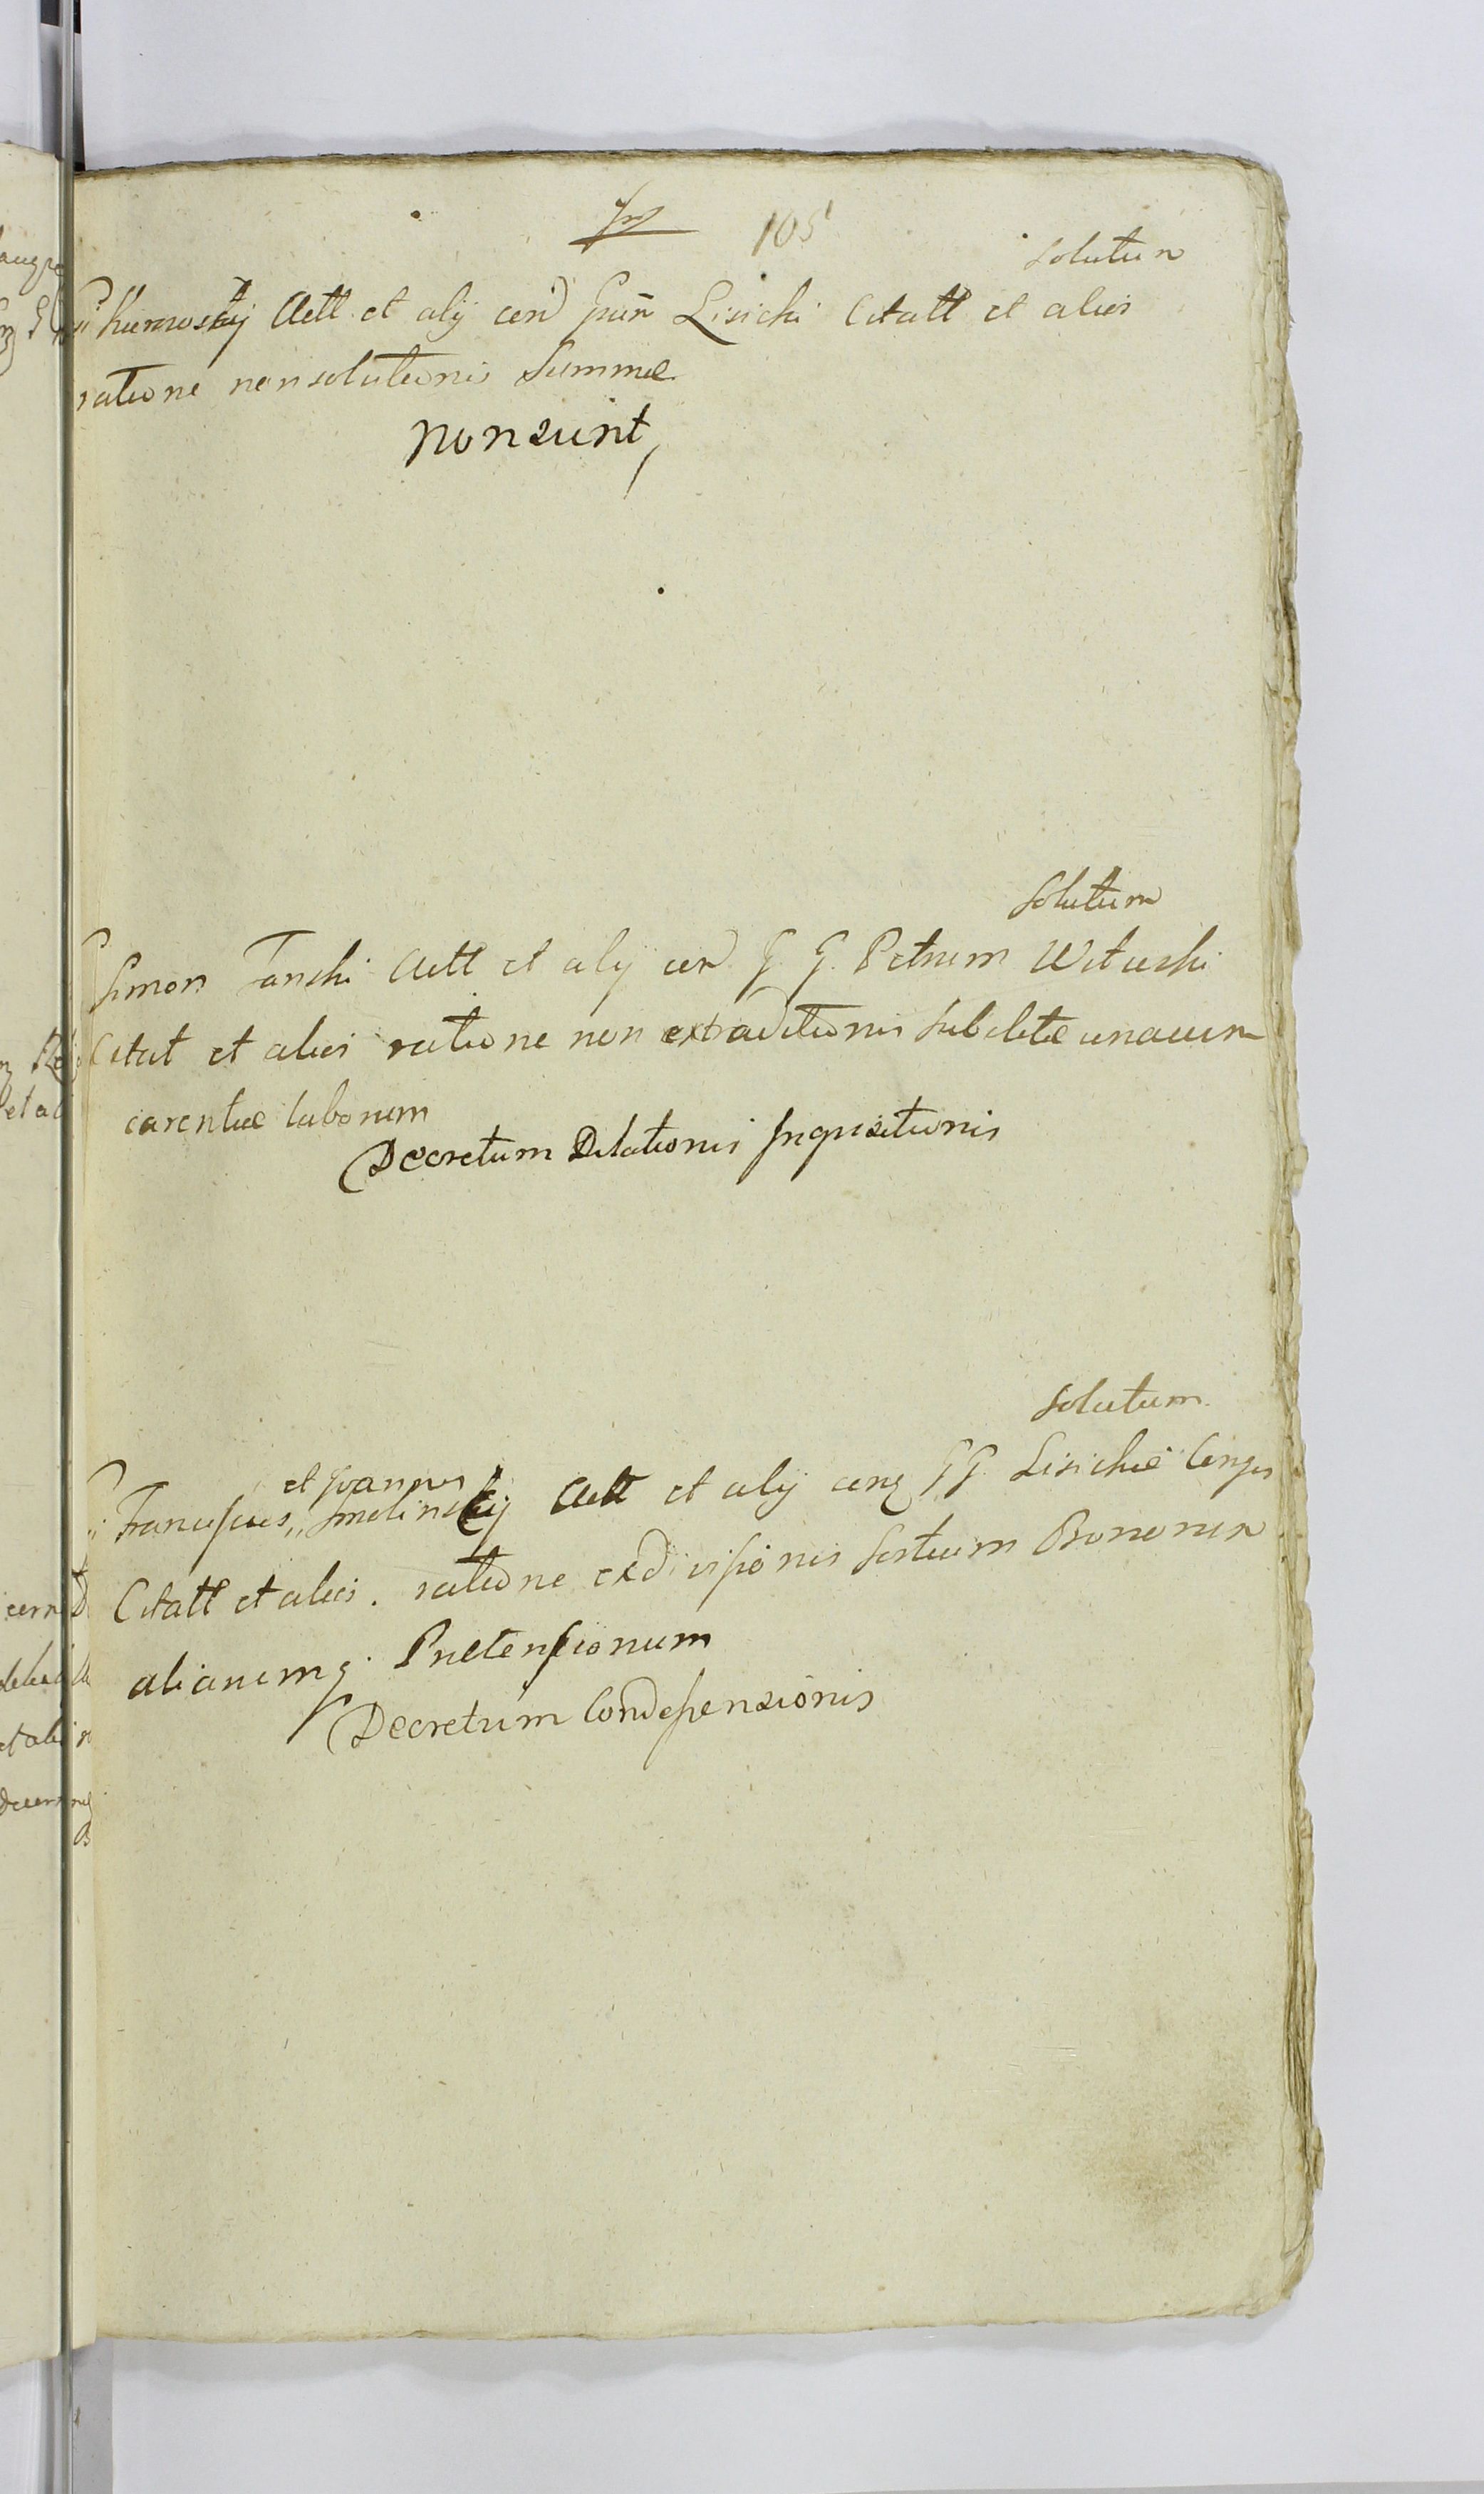 105
Solutum
Kurowskij Actt et alij cum Gnm Lisicki Citatt et alios
ratione non solutionis Summæ
non sunt
Solutum
Simon Janski Actt et alij cum G. G. Petrum Wituski
Citat et alios ratione non extraditionis subditæ unacum
carentiæ laborum
Decretum Dilationis Inquisitionis
Solutum
et Joannes
Franciscus,, Smolinskij Actt et alij cum GG. Lisickie Conjes
Citatt et alios. ratione exdivisionis Sortium Bonorum
aliarumq. Prætensionum
Decretum Condescensionis